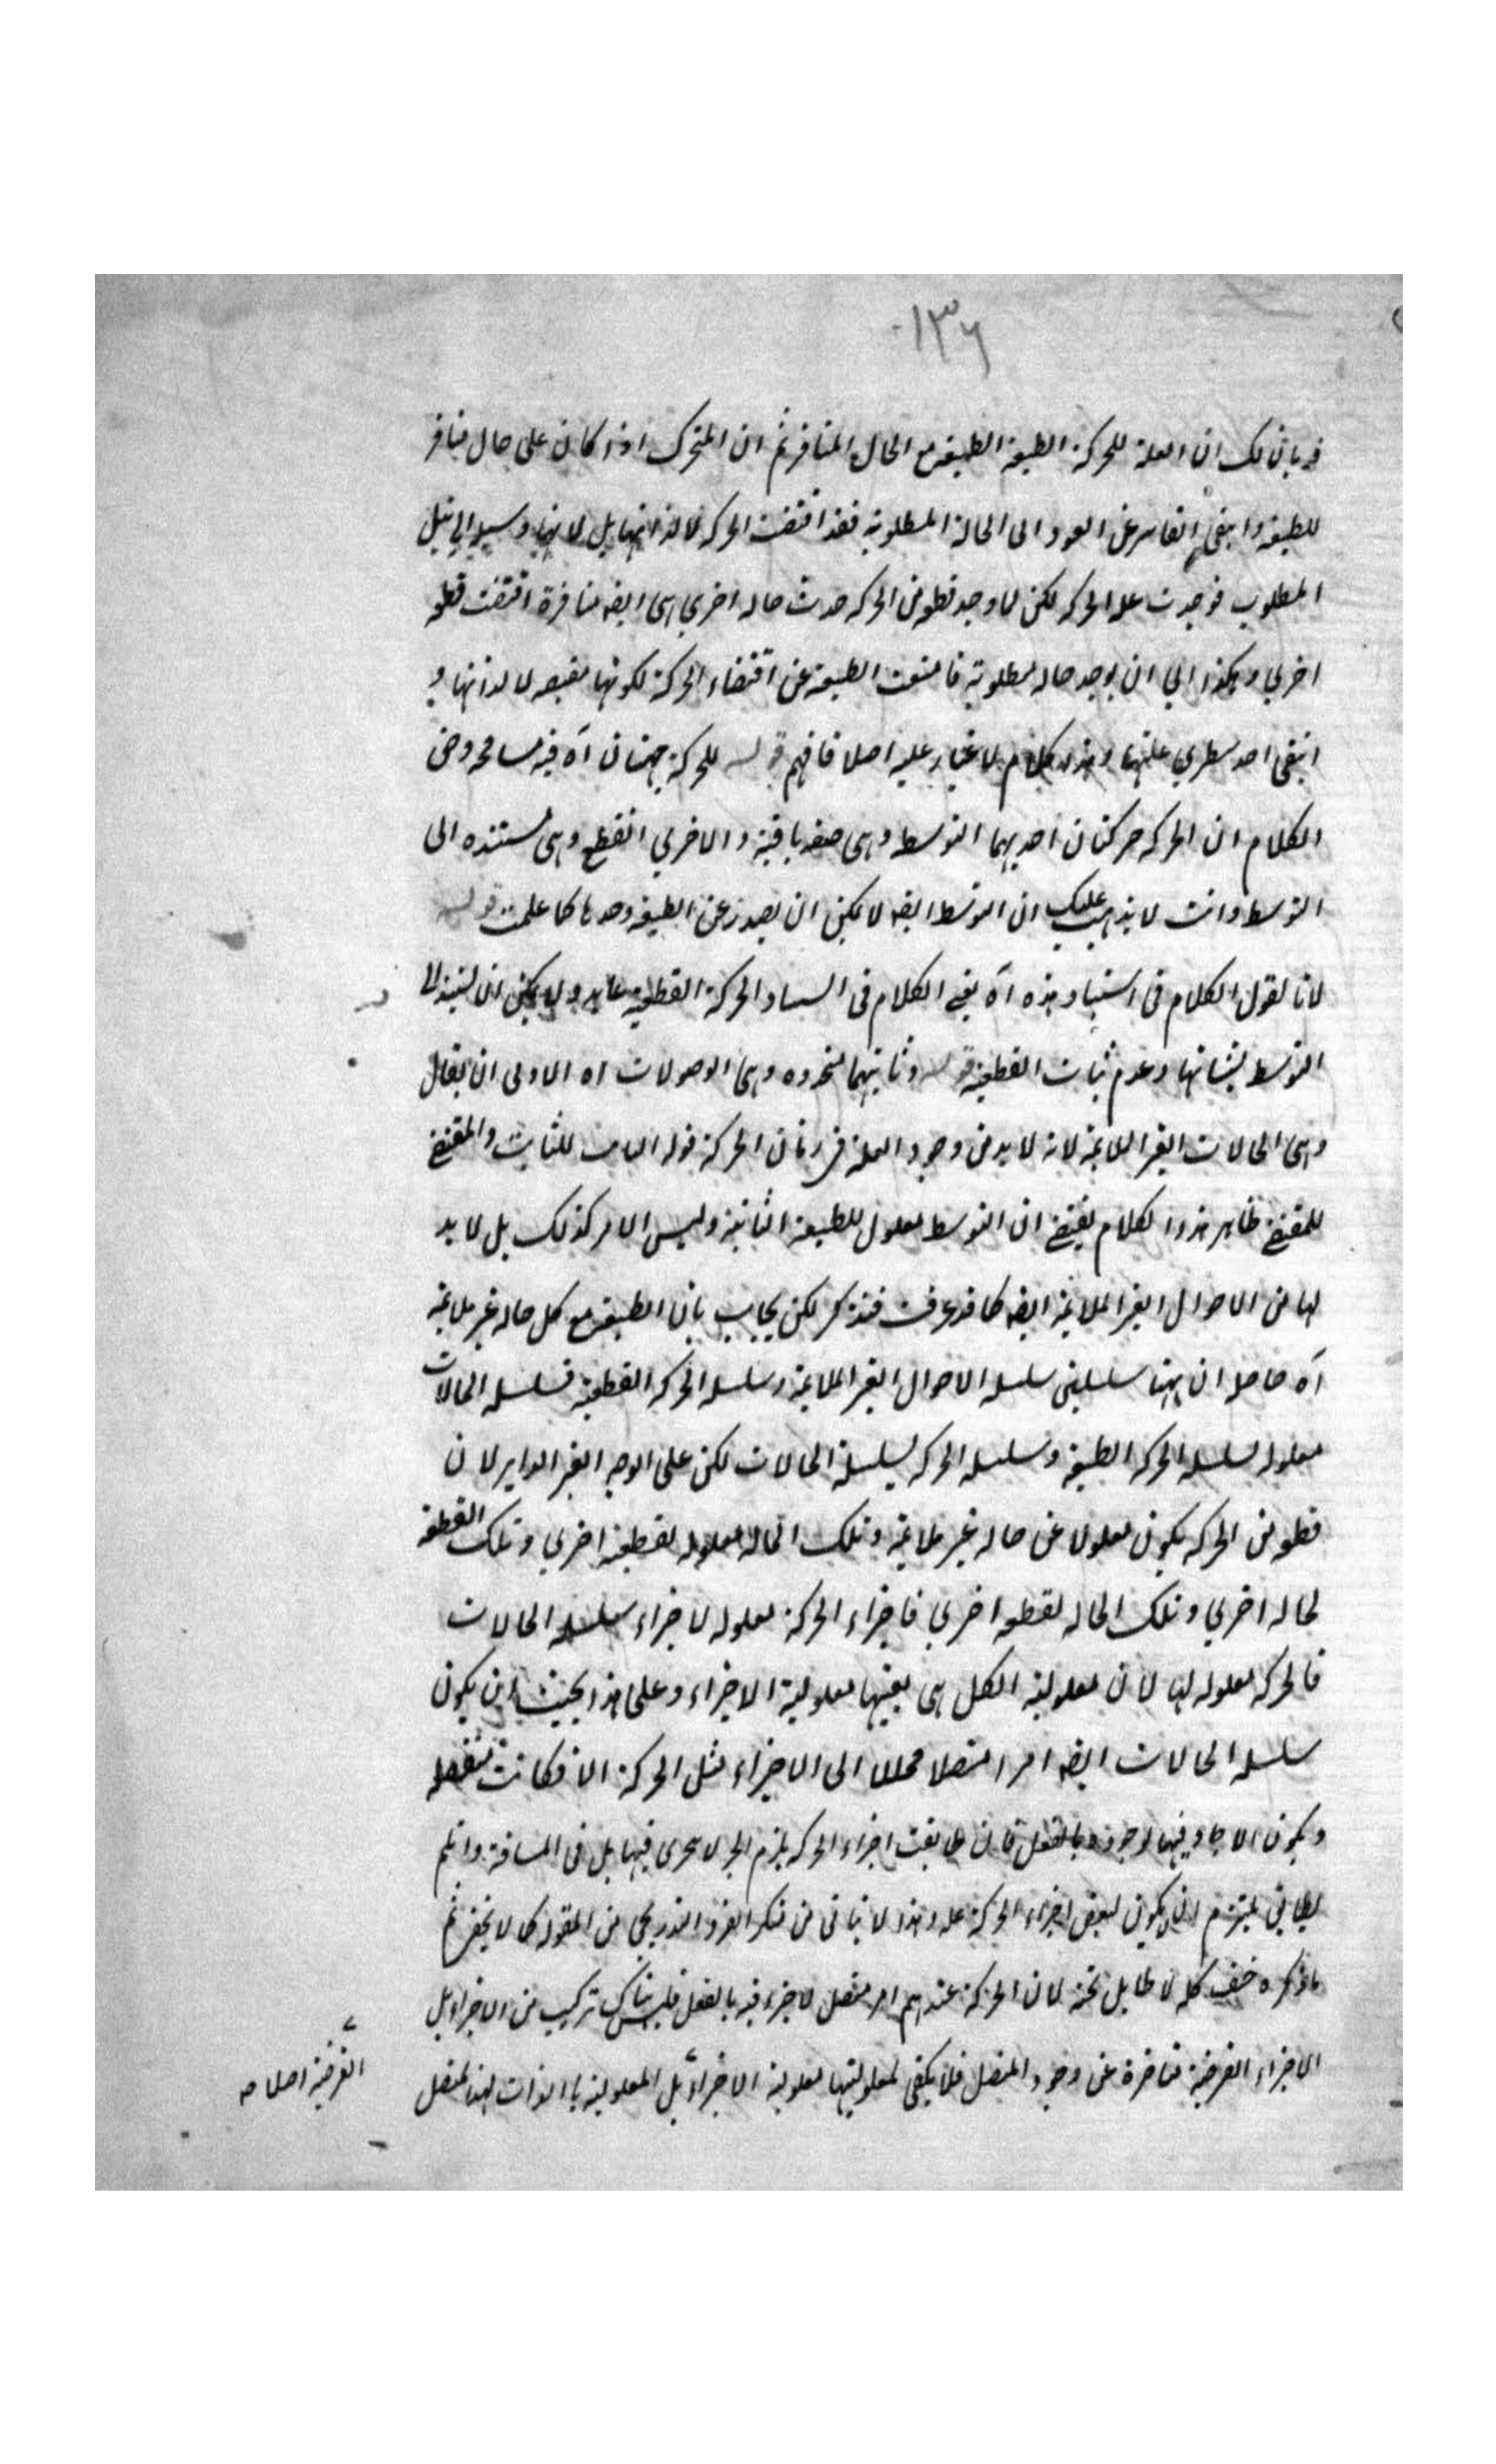 ١٣٦
قد بان لك ان العلة للحركة الطبيعة الطبيعة مع الحال المنافر ثم ان المتحرك اذا كان على حال منافر
للطبيعة وانتفى القاسر عن العود الى الحالة المطلوبة فقد اقتضت الحركة لا لذاتها بل لانها وسيلة الى نيل
المطلوب فوجدت علة الحركة لكن لما وجد قطعة من الحركة حدث حالة اخرى هى ايضه منافرة اقتضت قطعة
اخرى وهكذا الى ان يوجد حالة مطلوبة فامتنعت الطبيعة عن اقتضاء الحركة لكونها مقتضية لا لذاتها و
انتفى احد شطرى علتها وهذا كلام لا غبار عليه اصلا فافهم قوله للحركة جهتان آه فيه مسامحة وحق
الكلام ان الحركة حركتان احديهما التوسط وهى صفة باقية والاخرى القطع وهى مستندة الى
التوسط وانت لا يذهب عليك ان التوسط ايضه لا يمكن ان يصدر عن الطبيعة وحدها كما علمت قوله
لانا نقول الكلام فى استناد هذه آه يعنى الكلام فى استناد الحركة القطعية ولا يمكن ان تستند الى
التوسط لثباتها وعدم ثبات القطعية قوله وثانيتهما متجددة وهى الوصولات اه الاولى ان يقال
وهى الحالات الغير الملائمة لانه لا بد من وجود العلة فى زمان الحركة قوله الثابت للثابت والمقتضى
للمقتضى ظاهر هذا الكلام يقتضى ان التوسط معلول للطبيعة الثابتة وليس الامر كذلك بل لا بد
لها من الاحوال الغير الملائمة ايضه كما قد عرفت فتذكر لكن يجاب بان الطبيعة مع كل حالة غير ملائمة
آه حاصله ان ههنا سلسلتين سلسلة الاحوال الغير الملائمة وسلسلة الحركة القطعية فسلسلة الحالات
معلولة لسلسلة الحركة الطبيعية وسلسلة الحركة لسلسلة الحالات لكن على الوجه الغير الداير لان
قطعة من الحركة يكون معلولا عن حالة غير ملائمة وتلك الحالة معلولة لقطعة اخرى وتلك القطعة
لحالة اخرى وتلك الحالة لقطعة اخرى فاجزاء الحركة معلولة لاجزاء سلسلة الحالات
فالحركة معلولة لها لان معلولية الكل هى بعينها معلولية الاجزاء وعلى هذا يجب ان يكون
سلسلة الحالات ايضه امرا متصلا محللا الى الاجزاء مثل الحركة اذ لو كانت منفصلة
ويكون الاحاد فيها موجودة بالفعل فان طابقت اجزاء الحركة يلزم الجزء لا يتجزى فيها بل فى المسافة وان لم
يطابق يلتزم ان يكون لبعض اجزاء الحركة علة وهذا لا يتاتى من منكر الفرد التدريجى من المقولة كما لا يخفى ثم
ما ذكره خفيف كله لا طايل تحته لان الحركة عندهم امر متصل لا جزء فيه بالفعل فليس هناك تركيب من الاجزاء بل
الاجزاء الفرضية متاخرة عن وجود المتصل فلا يكفى لمعلوليتها معلولية الاجزاء بل المعلولية بالذات لهذا المتصل
الفرضية اصلا صه